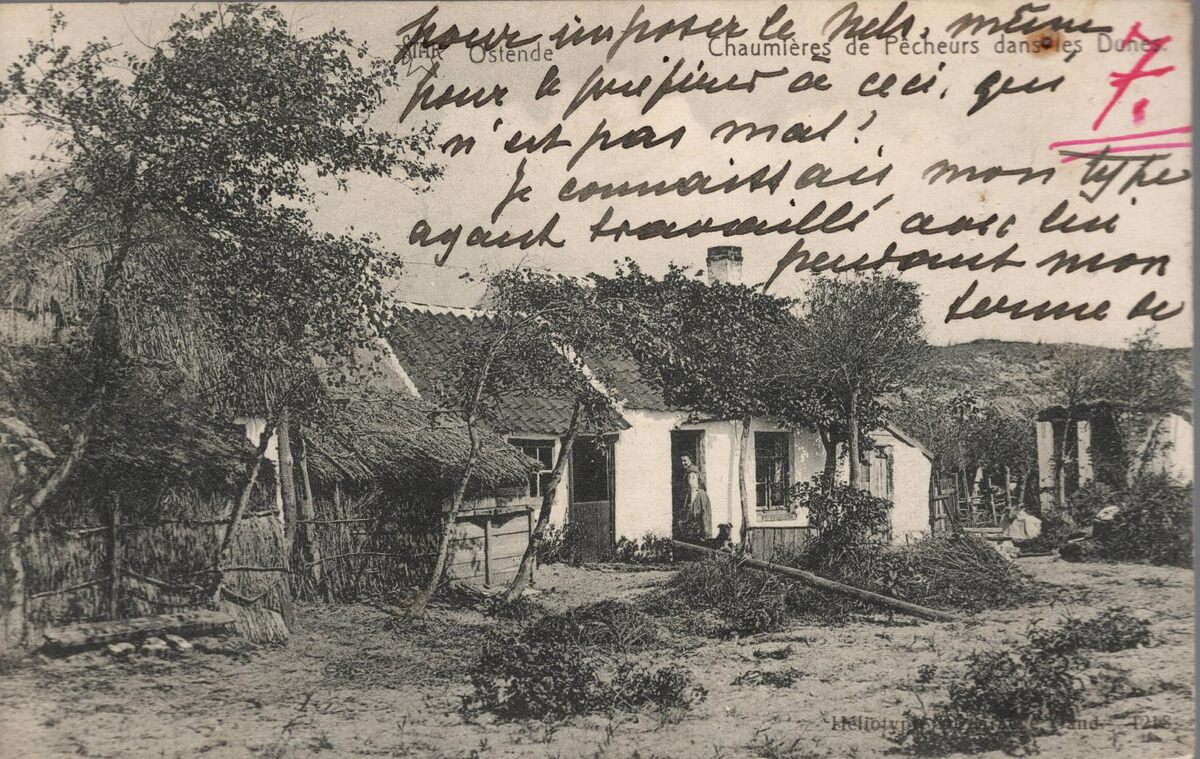 pour imposer le Nels, même
Ostende Chaumières de Pêcheurs dans les Dunes.
pour le préférer à ceci, qui
n'est pas mal!
7.
Je connaissais mon type
ayant travaillé avec lui
pendant mon
terme de
1218